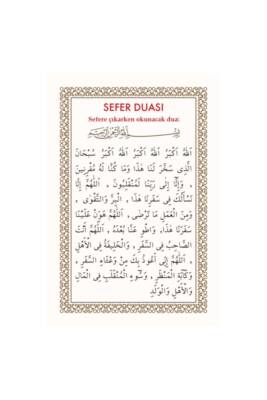 SEFER DUASI
Sefere çıkarken okunacak dua:
بِسْمِ اللهِ الرَّحْمٰنِ الرَّحِيمِ
اَللهُ اَكْبَرُ اَللهُ اَكْبَرُ اَللهُ اَكْبَرُ سُبْحَانَ
الَّذِي سَخَّرَ لَنَا هَذَا وَمَا كُنَّا لَهُ مُقْرِنِينَ
، وَإِنَّا إِلَى رَبِّنَا لَمُنْقَلِبُونَ ، اَللَّهُمَّ إِنَّا
نَسْأَلُكَ فِي سَفَرِنَا هَذَا ، الْبِرَّ وَالتَّقْوَى ،
وَمِنَ الْعَمَلِ مَا تَرْضَى ، اَللَّهُمَّ هَوِّنْ عَلَيْنَا
سَفَرَنَا هَذَا، وَاطْوِ عَنَّا بُعْدَهُ ، اَللَّهُمَّ أَنْتَ
الصَّاحِبُ فِي السَّفَرِ ، وَالْخَلِيفَةُ فِي الْأَهْلِ
، اَللَّهُمَّ إِنِّي أَعُوذُ بِكَ مِنْ وَعْثَاءِ السَّفَرِ ،
وَكَآبَةِ الْمَنْظَرِ ، وَسُوءِ الْمُنْقَلَبِ فِي الْمَالِ
وَالْأَهْلِ وَالْوَلَدِ